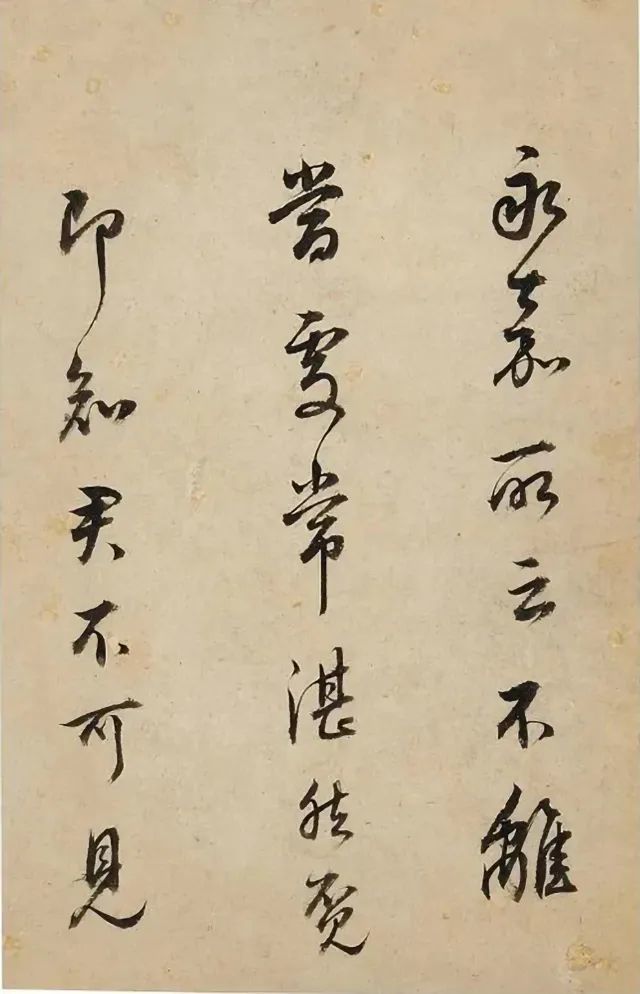 永嘉所云不離
當處常湛然覔
即知君不可見